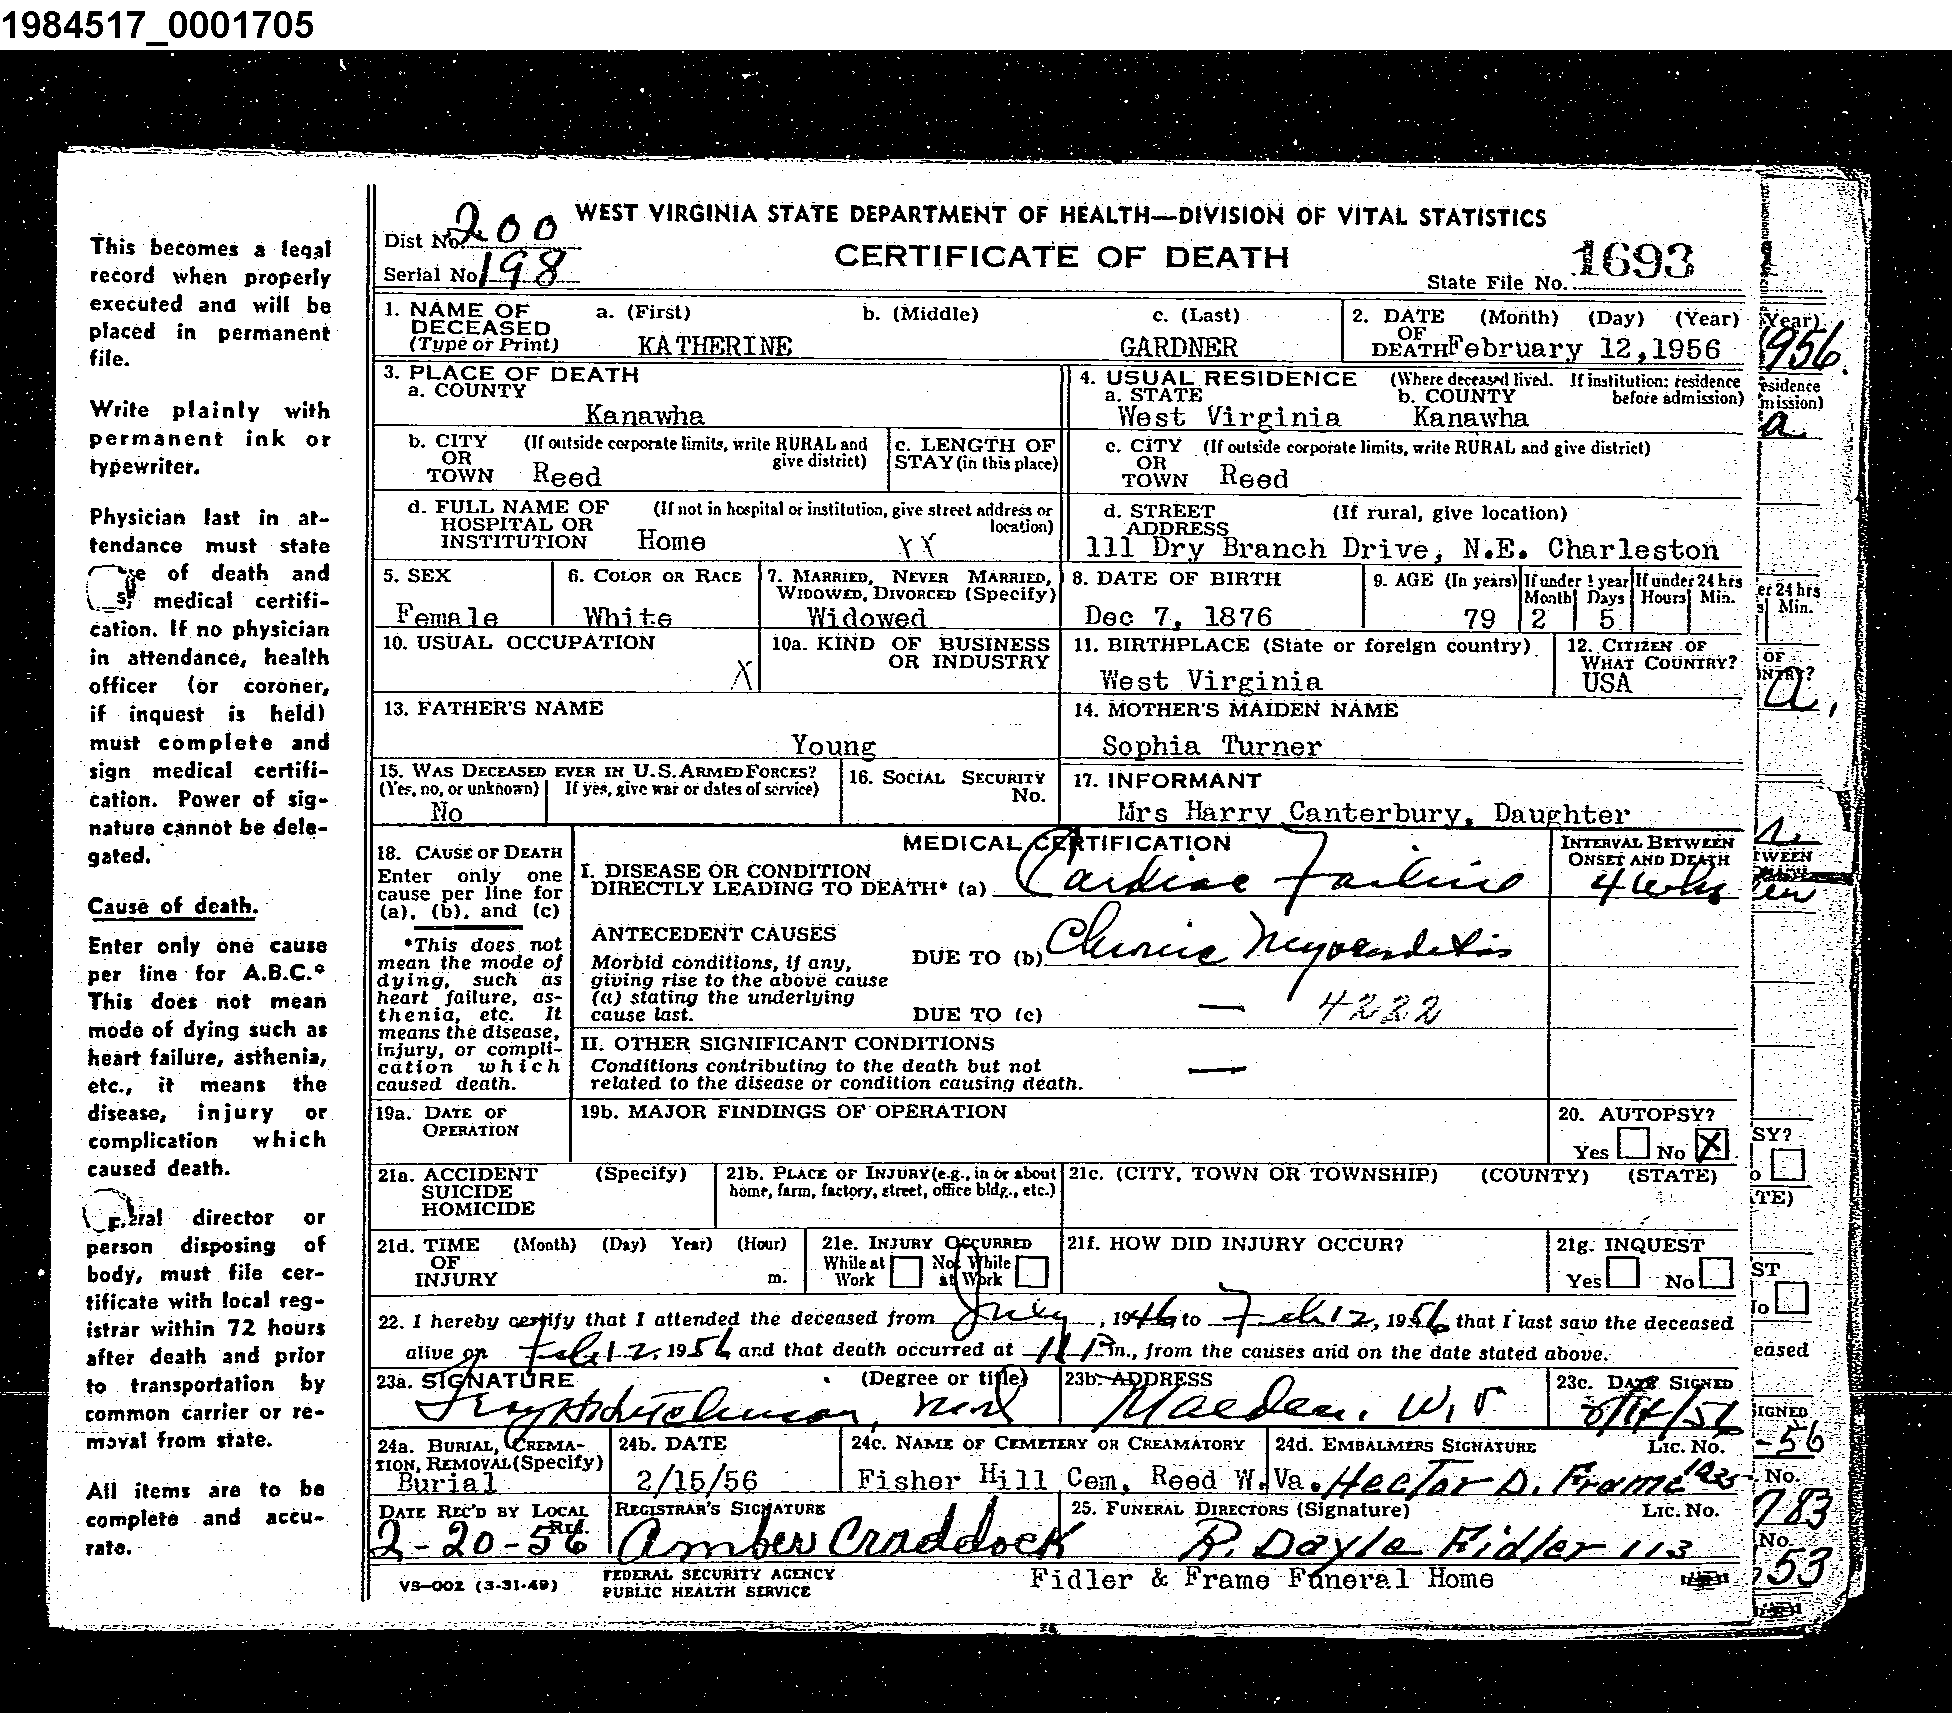 1984517_0001705
This becomes a legal
record when properly
executed and will be
placed in permanent
file.
Write plainly with
permanent ink or
typewriter.
Physician last in at-
tendance must state
of death and
medical certifi-
cation. If no physician
in attendance, health
officer (or coroner,
if inquest is held)
must complete and
sign medical certifi-
cation. Power of sig-
nature cannot be dele-
gated.
Cause of death.
Enter only one cause
per line for A.B.C.*
This does not mean
mode of dying such as
heart failure, asthenia,
etc., it means the
disease, injury or
complication which
caused death.
director or
person disposing of
body, must file cer-
tificate with local reg-
istrar within 72 hours
after death and prior
to transportation by
common carrier or re-
moval from state.
All items are to be
complete and accu-
rate.
WEST VIRGINIA STATE DEPARTMENT OF HEALTH—DIVISION OF VITAL STATISTICS
Dist No. 200
CERTIFICATE OF DEATH
Serial No. 198
State File No. 1693
1. NAME OF DECEASED (Type or Print) a. (First) b. (Middle) c. (Last)
KATHERINE GARDNER
2. DATE OF DEATH (Month) (Day) (Year)
February 12, 1956
3. PLACE OF DEATH
a. COUNTY
Kanawha
4. USUAL RESIDENCE (Where deceased lived. If institution: residence before admission)
a. STATE b. COUNTY
West Virginia Kanawha
b. CITY OR TOWN (If outside corporate limits, write RURAL and give district)
Reed
c. LENGTH OF STAY (in this place)
c. CITY OR TOWN (If outside corporate limits, write RURAL and give district)
Reed
d. FULL NAME OF HOSPITAL OR INSTITUTION (If not in hospital or institution, give street address or location)
Home XX
d. STREET ADDRESS (If rural, give location)
111 Dry Branch Drive, N.E. Charleston
5. SEX
Female
6. COLOR OR RACE
White
7. MARRIED, NEVER MARRIED, WIDOWED, DIVORCED (Specify)
Widowed
8. DATE OF BIRTH
Dec 7, 1876
9. AGE (In years) If under 1 year Month Days If under 24 hrs Hours Min.
79 2 5
10. USUAL OCCUPATION
X
10a. KIND OF BUSINESS OR INDUSTRY
11. BIRTHPLACE (State or foreign country)
West Virginia
12. CITIZEN OF WHAT COUNTRY?
USA
13. FATHER'S NAME
Young
14. MOTHER'S MAIDEN NAME
Sophia Turner
15. WAS DECEASED EVER IN U.S. ARMED FORCES?
(Yes, no, or unknown) If yes, give war or dates of service)
No
16. SOCIAL SECURITY No.
17. INFORMANT
Mrs Harry Canterbury, Daughter
MEDICAL CERTIFICATION
INTERVAL BETWEEN ONSET AND DEATH
18. CAUSE OF DEATH
Enter only one
cause per line for
(a), (b), and (c)
*This does not
mean the mode of
dying, such as
heart failure, as-
thenia, etc. It
means the disease,
injury, or compli-
cation which
caused death.
I. DISEASE OR CONDITION
DIRECTLY LEADING TO DEATH* (a) Cardiac Failure 4 wks.
ANTECEDENT CAUSES
Morbid conditions, if any,
giving rise to the above cause
(a) stating the underlying
cause last.
DUE TO (b) Chronic Myocarditis
DUE TO (c) — 4222
II. OTHER SIGNIFICANT CONDITIONS
Conditions contributing to the death but not
related to the disease or condition causing death. —
19a. DATE OF OPERATION
19b. MAJOR FINDINGS OF OPERATION
20. AUTOPSY?
Yes No X
21a. ACCIDENT SUICIDE HOMICIDE (Specify)
21b. PLACE OF INJURY (e.g., in or about home, farm, factory, street, office bldg., etc.)
21c. (CITY, TOWN OR TOWNSHIP) (COUNTY) (STATE)
21d. TIME OF INJURY (Month) (Day) Year) (Hour) m.
21e. INJURY OCCURRED
While at Work Not While at Work
21f. HOW DID INJURY OCCUR?
21g. INQUEST
Yes No
22. I hereby certify that I attended the deceased from July, 1946 to Feb 12, 1956 that I last saw the deceased
alive on Feb 12, 1956 and that death occurred at 11 P m., from the causes and on the date stated above.
23a. SIGNATURE (Degree or title)
Hutchinson, M.D.
23b. ADDRESS
Malden, W. V
23c. DATE SIGNED
24a. BURIAL, CREMA-
TION, REMOVAL (Specify)
Burial
24b. DATE
2/15/56
24c. NAME OF CEMETERY OR CREAMATORY
Fisher Hill Cem, Reed W. Va.
24d. EMBALMERS SIGNATURE Lic. No.
Hector D. Frame 1925
DATE REC'D BY LOCAL REG.
2-20-56
REGISTRAR'S SIGNATURE
Amber Craddock
25. FUNERAL DIRECTORS (Signature) Lic. No.
R. Dayle Fidler 113
VS-002 (3-31-49)
FEDERAL SECURITY AGENCY
PUBLIC HEALTH SERVICE
Fidler & Frame Funeral Home